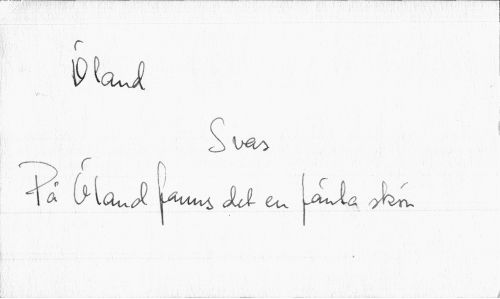 Öland
Svas
På Öland fanns det en jänta skön